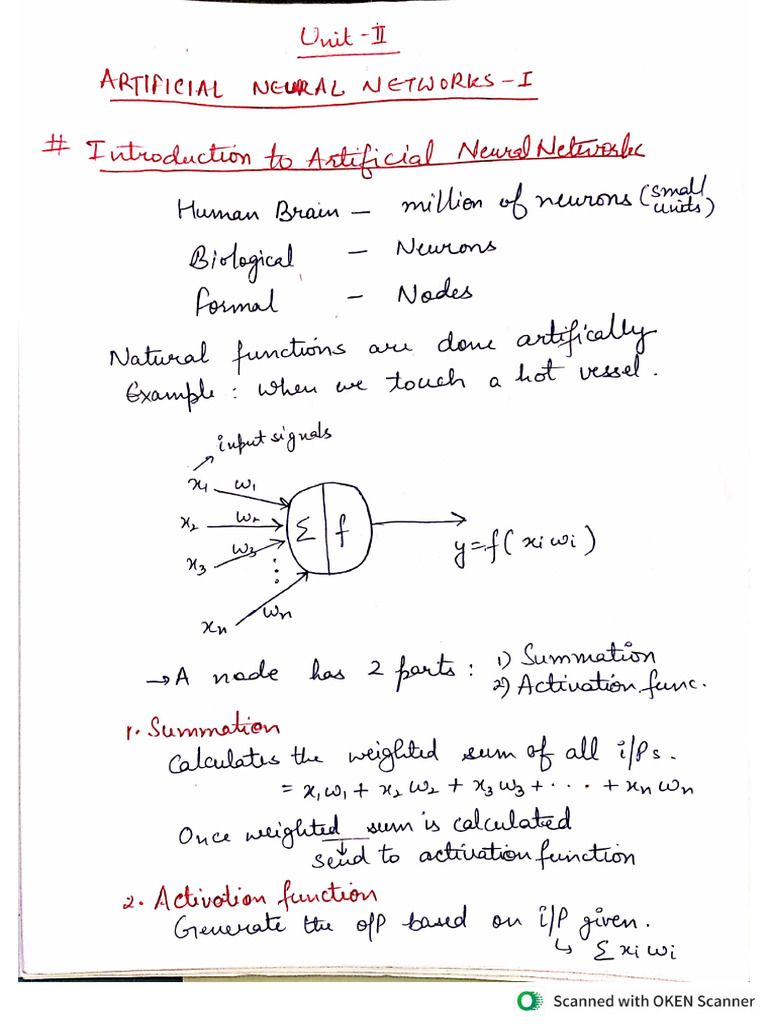 Unit-II
ARTIFICIAL NEURAL NETWORKS-I
# Introduction to Artificial Neural Networks
Human Brain - million of neurons (small units)
Biological - Neurons
Formal - Nodes
Natural functions are done artifically
Example: When we touch a hot vessel.
input signals
x1 w1
x2 w2
x3 w3
⋮
xn wn
Σ f
y=f(xiwi)
→ A node has 2 parts: 1) Summation
2) Activation func.
1. Summation
Calculates the weighted sum of all i/ps.
= x1w1 + x2w2 + x3w3 + ... + xnwn
Once weighted sum is calculated
↓
send to activation function
2. Activation function
Generate the o/p based on i/p given.
↳ Σxiwi
Scanned with OKEN Scanner